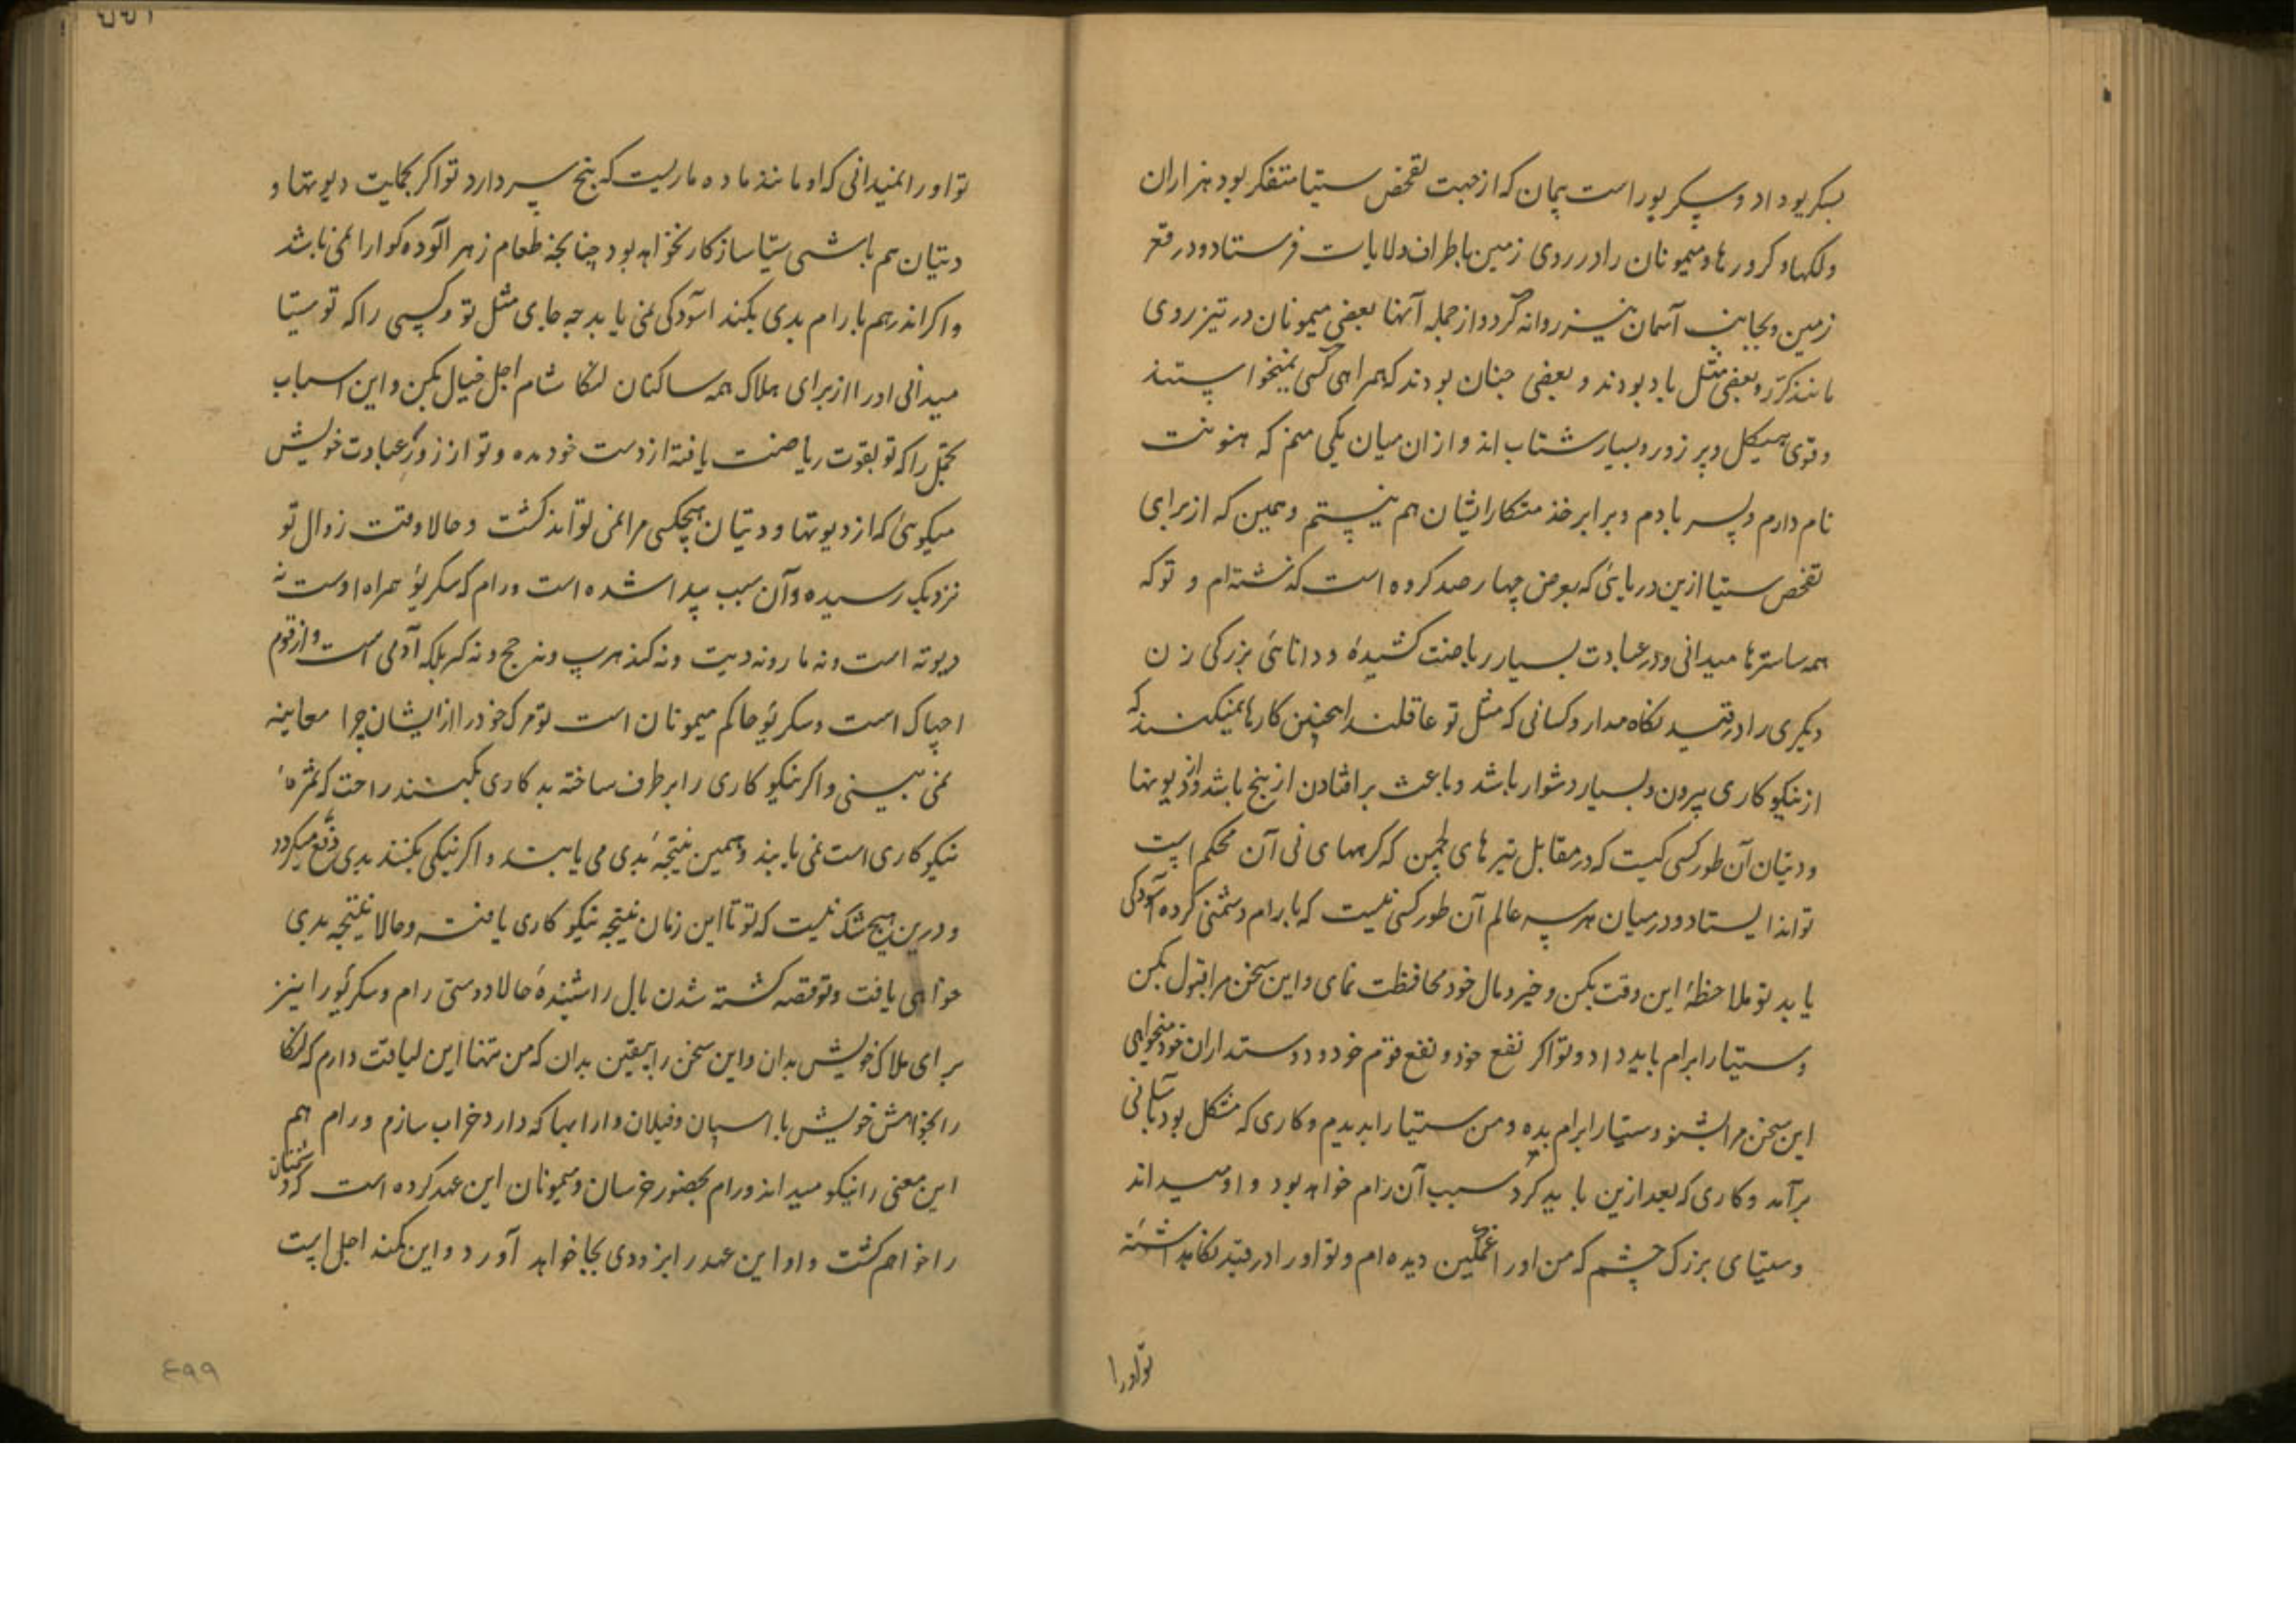 بسکریو داد و سکریو راست پیمان که از جهت تفحص ستیا متفکر بود هزاران
و لکها و کرورها و میمونان را در روی زمین باطراف ولایات فرستاد و در قعر
زمین و بجانب آسمان نیز روانه کرد و از جمله آنها بعضی میمونان در تیز روی
مانند کرر و بعضی مثل باد بودند و بعضی چنان بودند که همراهی کسی نمیخواستند
و قوی هیکل و پر زور و بسیار شتاب اند و از ان میان یکی منم که هنونت
نام دارم و پسر بادم و برابر خدمتکار ایشان هم نیستم و همین که از برای
تفحص ستیا ازین دریائی که بعرض چهار صد کروه است گذشته ام و تو که
همه ساسترها میدانی و در عبادت بسیار ریاضت کشیدهٔ و دانائی بزرکی زن
دیکری را در قید نکاه مدار و کسانی که مثل تو عاقلند اهمچنین کارها نمیکنند که
از نیکو کاری بیرون و بسیار دشوار باشد و باعث بر افتادن از بیخ باشد و از دیوتها
و دتیان آن طور کسی کیست که در مقابل تیرهای لچمن که کرههای نی آن محکم است
تواند ایستاد و در میان هر سه عالم آن طور کسی نیست که با رام دشمنی کرده آسودکی
یابد تو ملاحظهٔ این وقت بکن و خیر و مال خود محافظت نمای و این سخن مرا قبول بکن
و ستیا را برام باید داد و تو اکر نفع خود و نفع قوم خود و دوستداران خود میخواهی
این سخن مرا بشنو و ستیا را برام بده و من ستیا را بدیدم و کاری که مشکل بود بآسانی
برآمد و کاری که بعد ازین باید کرد سبب آن رام خواهد بود و او میداند
و ستیای بزرک چشم که من او را غمکین دیده ام و تو او را در قید نکاهداشتهٔ
تو او را
تو او را نمیدانی که او مانند ماده ماریست که پنج سر دارد تو اکر بحمایت دیوتها و
دتیان هم باشی ستیا سازکار نخواهد بود چنانچه طعام زهر آلوده کوارا نمی باشد
و اکر اندر هم با رام بدی بکند آسودکی نمی یابد چه جای مثل تو و کسی را که تو ستیا
میدانی او را از برای هلاک همه ساکنان لنکا شام اجل خیال بکن و این اسباب
تجمل را که تو بقوت ریاضت یافتهٔ از دست خود مده و تو از زور عبادت خویش
میکوئی که از دیوتها و دتیان هیچکسی مرا نمی تواند کشت و حالا وقت زوال تو
نزدیک رسیده و آن سبب پیدا شده است و رام که سکریو همراه اوست نه
دیوته است و نه مار و نه دیت و نه کندهرپ و نه جچ و نه کنر بلکه آدمی است و از قوم
اچپاک است و سکریو حاکم میمونان است تو مرک خود را از ایشان چرا معاینه
نمی بینی و اکر نیکو کاری را بر طرف ساخته بد کاری بکنند راحت که ثمرهٔ
نیکو کاری است نمی یابند و همین نتیجهٔ بدی می یابند و اکر نیکی بکنند بدی دفع میکردد
و درین هیچ شک نیست که تو تا این زمان نتیجه نیکو کاری یافته و حالا نتیجه بدی
خواهی یافت و تو قصه کشته شدن بال را شنیدهٔ حالا دوستی رام و سکریو را نیز
برای هلاک خویش بدان و این سخن را یقین بدان که من تنها این لیاقت دارم که لنکا
را بخواهش خویش با اسپان و فیلان و ارابها که دارد خراب سازم و رام هم
این معنی را نیکو میداند و رام بحضور خرسان و میمونان این عهد کرده است که دشمنان
را خواهم کشت و او این عهد را بزودی بجا خواهد آورد و این کمند اجلی است
۴۹۹